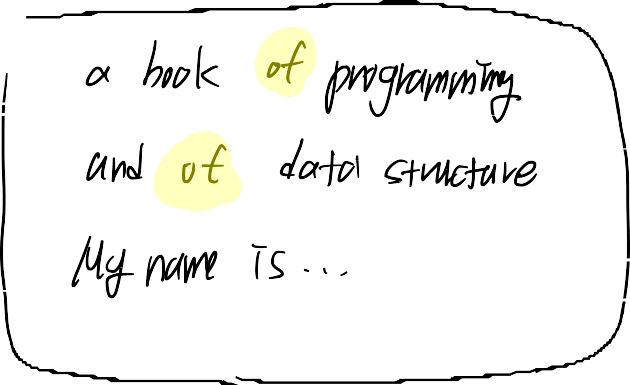 a book of programming
and of data structure
My name is...